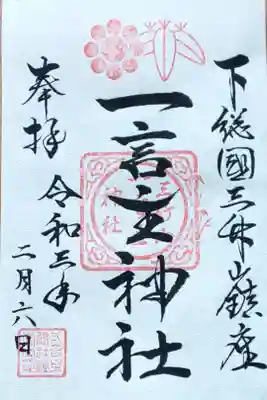 下総國三竹山鎮座
一言主神社
奉拝
令和三年
二月六日